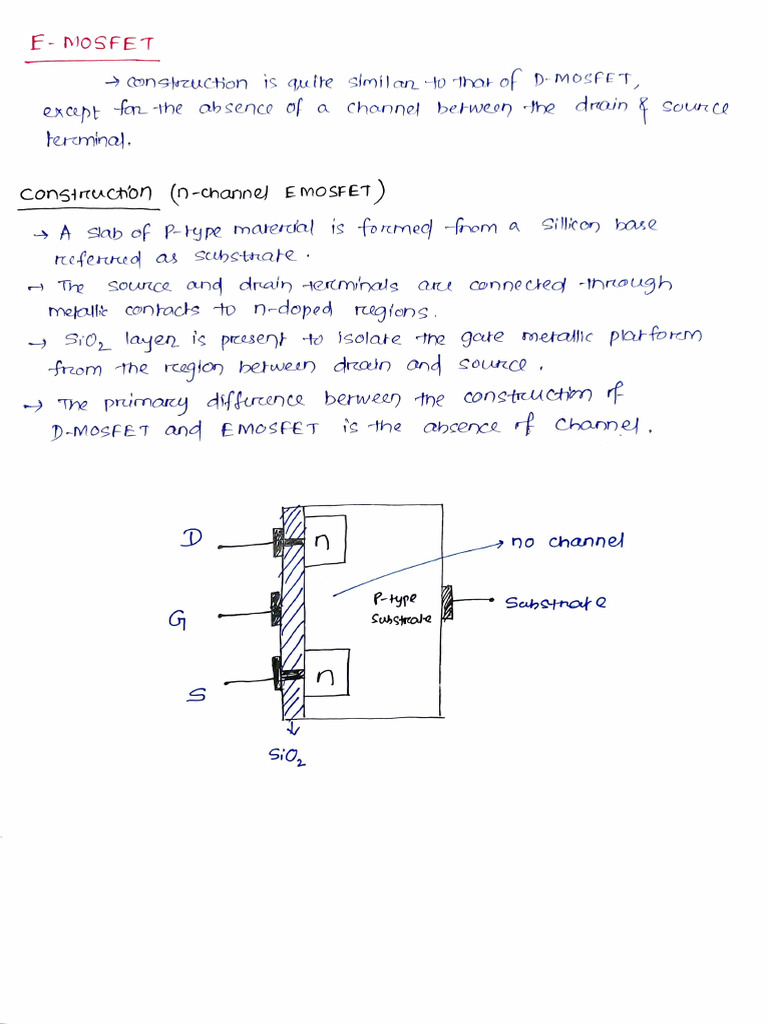 E-MOSFET
→ construction is quite similar to that of D-MOSFET,
except for the absence of a channel between the drain & source
terminal.
Construction (n-channel EMOSFET)
→ A slab of P-type material is formed from a Sillicon base
referred as substrate.
→ The source and drain terminals are connected through
metallic contacts to n-doped regions.
→ SiO₂ layer is present to isolate the gate metallic platform
from the region between drain and source.
→ The primary difference between the construction of
D-MOSFET and EMOSFET is the absence of channel.
D
n
no channel
G
P-type
Substrate
Substrate
S
n
SiO₂